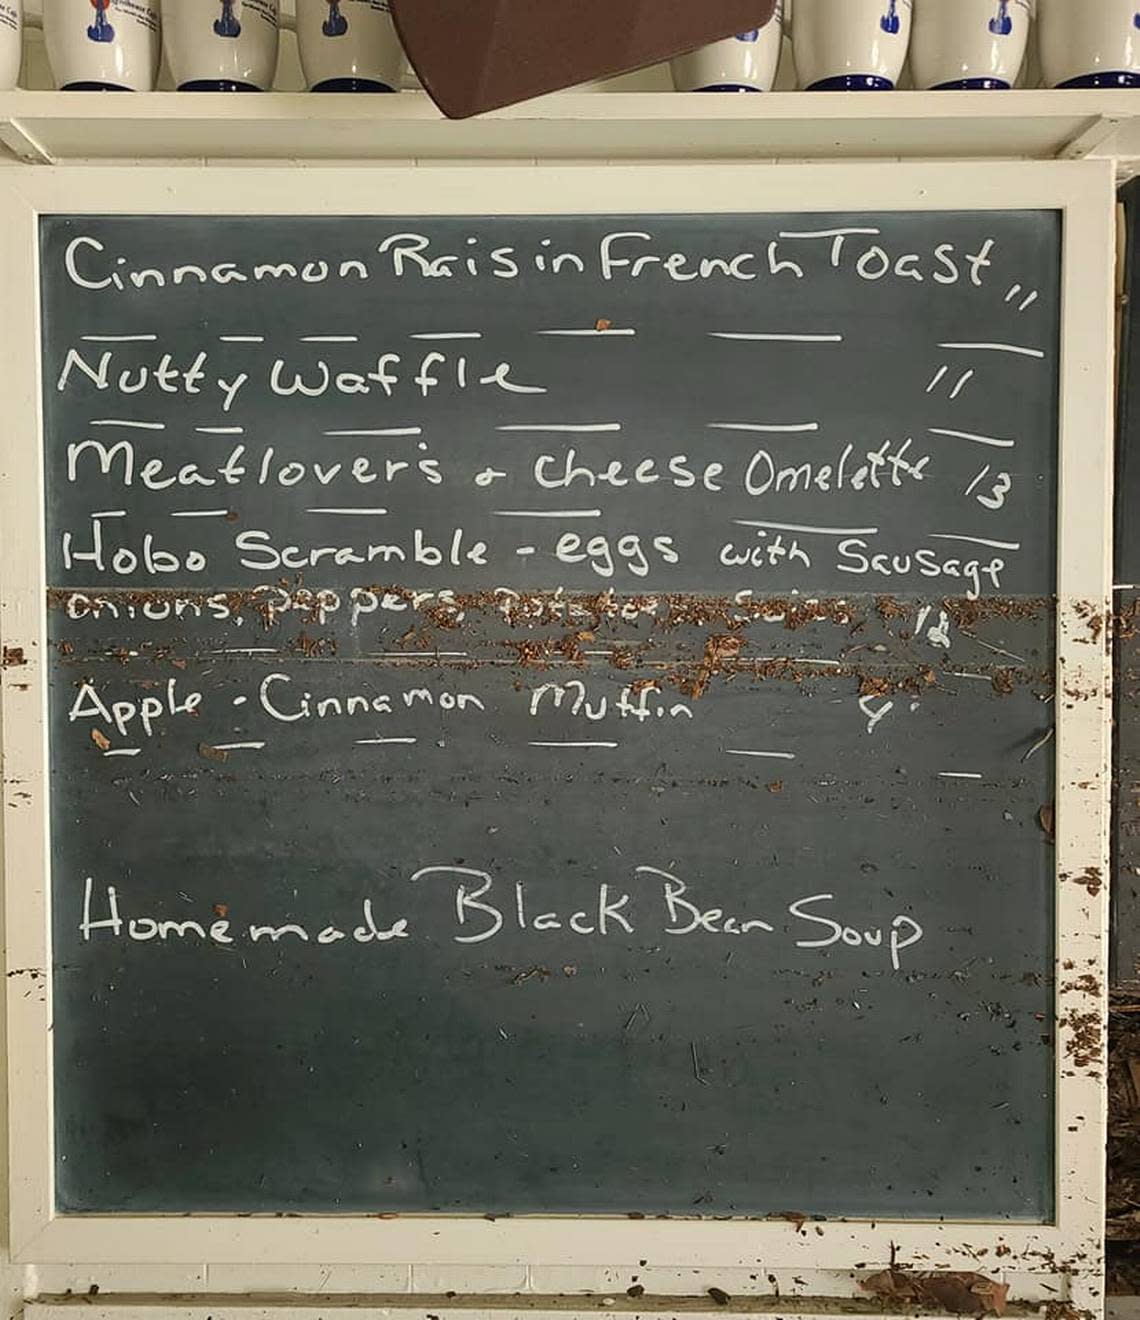 Cinnamon Raisin French Toast 11
Nutty Waffle 11
Meatlover's & Cheese Omelette 13
Hobo Scramble - eggs with Sausage
onions, peppers, Potatoes Swiss 12
Apple - Cinnamon Muffin 4.
Homemade Black Bean Soup